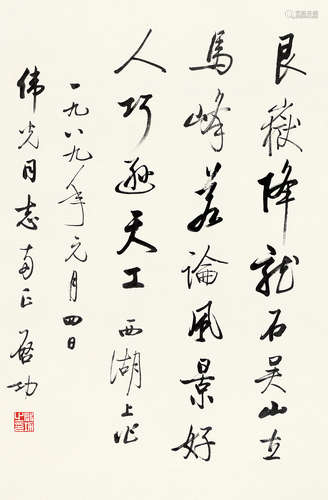 艮嶽降龍石吴山立
馬峰若論風景好
人巧遜天工 西湖上作
一九八九年元月四日
伟光同志两正 启功